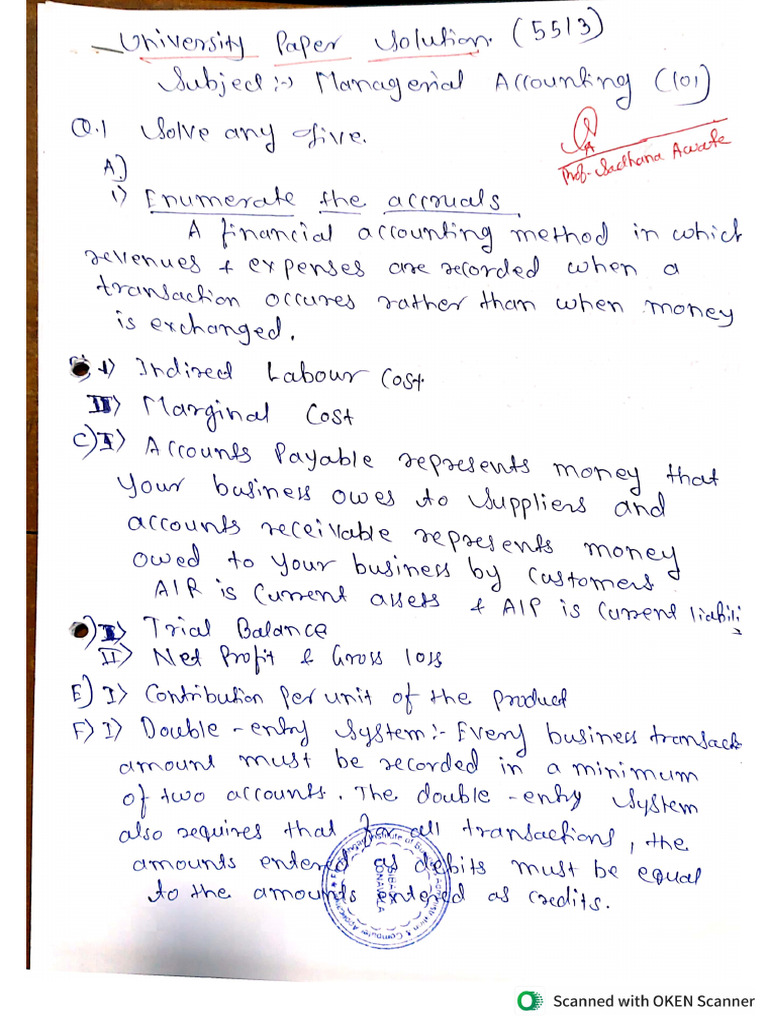 University Paper Solution. (5513)
Subject :-> Managerial Accounting (101)
Q.1 Solve any five.
Prof. Sadhana Awate
A)
1) Enumerate the accruals.
A financial accounting method in which
revenues & expenses are recorded when a
transaction occures rather than when money
is exchanged.
I) Indirect Labour Cost
II) Marginal Cost
C) I) Accounts Payable represents money that
your business owes to suppliers and
accounts receivable represents money
owed to your business by customers
A/R is current assets & A/P is current liabili
I) Trial Balance
II) Net Profit & Gross loss
E) I) Contribution per unit of the product
F) I) Double-entry system :- Every business transact
amount must be recorded in a minimum
of two accounts. The double-entry system
also requires that for all transactions, the
amounts entered as debits must be equal
to the amounts entered as credits.
SIBACA
LONAVALA
Institute of Business Administration & Computer Application
Scanned with OKEN Scanner